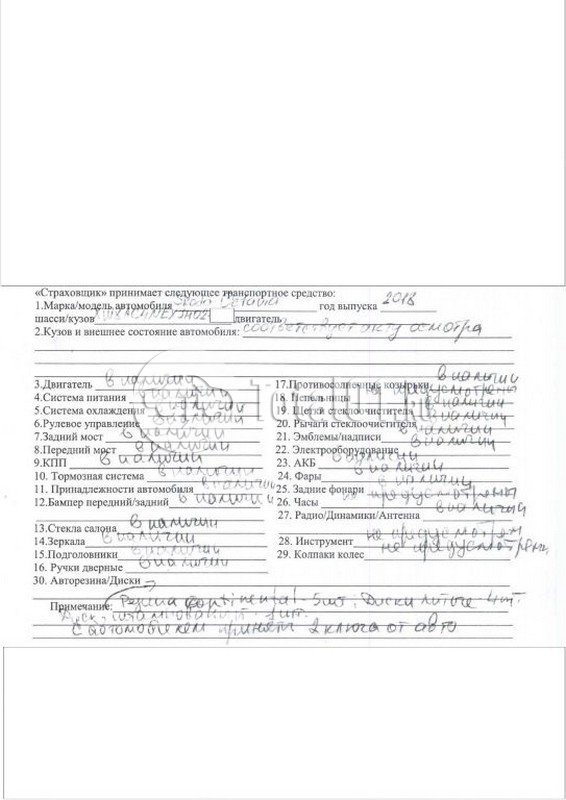 «Страховщик» принимает следующее транспортное средство:
1.Марка/модель автомобиля Skoda Octavia год выпуска 2018
шасси/кузов двигатель
2.Кузов и внешнее состояние автомобиля: соответствует акту осмотра
3.Двигатель в наличии
4.Система питания в наличии
5.Система охлаждения в наличии
6.Рулевое управление в наличии
7.Задний мост в наличии
8.Передний мост в наличии
9.КПП в наличии
10. Тормозная система в наличии
11. Принадлежности автомобиля в наличии
12.Бампер передний/задний в наличии
13.Стекла салона в наличии
14.Зеркала в наличии
15.Подголовники в наличии
16. Ручки дверные в наличии
17.Противосолнечные козырьки в наличии
18. Пепельницы не предусмотрены
19. Щетки стеклоочистителя в наличии
20. Рычаги стеклоочистителя в наличии
21. Эмблемы/надписи в наличии
22. Электрооборудование в наличии
23. АКБ в наличии
24. Фары в наличии
25. Задние фонари в наличии
26. Часы предусмотрены
27. Радио/Динамики/Антенна в наличии
28. Инструмент не предусмотрен
29. Колпаки колес не предусмотрены
30. Авторезина/Диски
Примечание: Резина continental - 5шт, Диски литые - 4шт.
Диск штампованный - 1шт.
С автомобилем приняты 2 ключа от авто